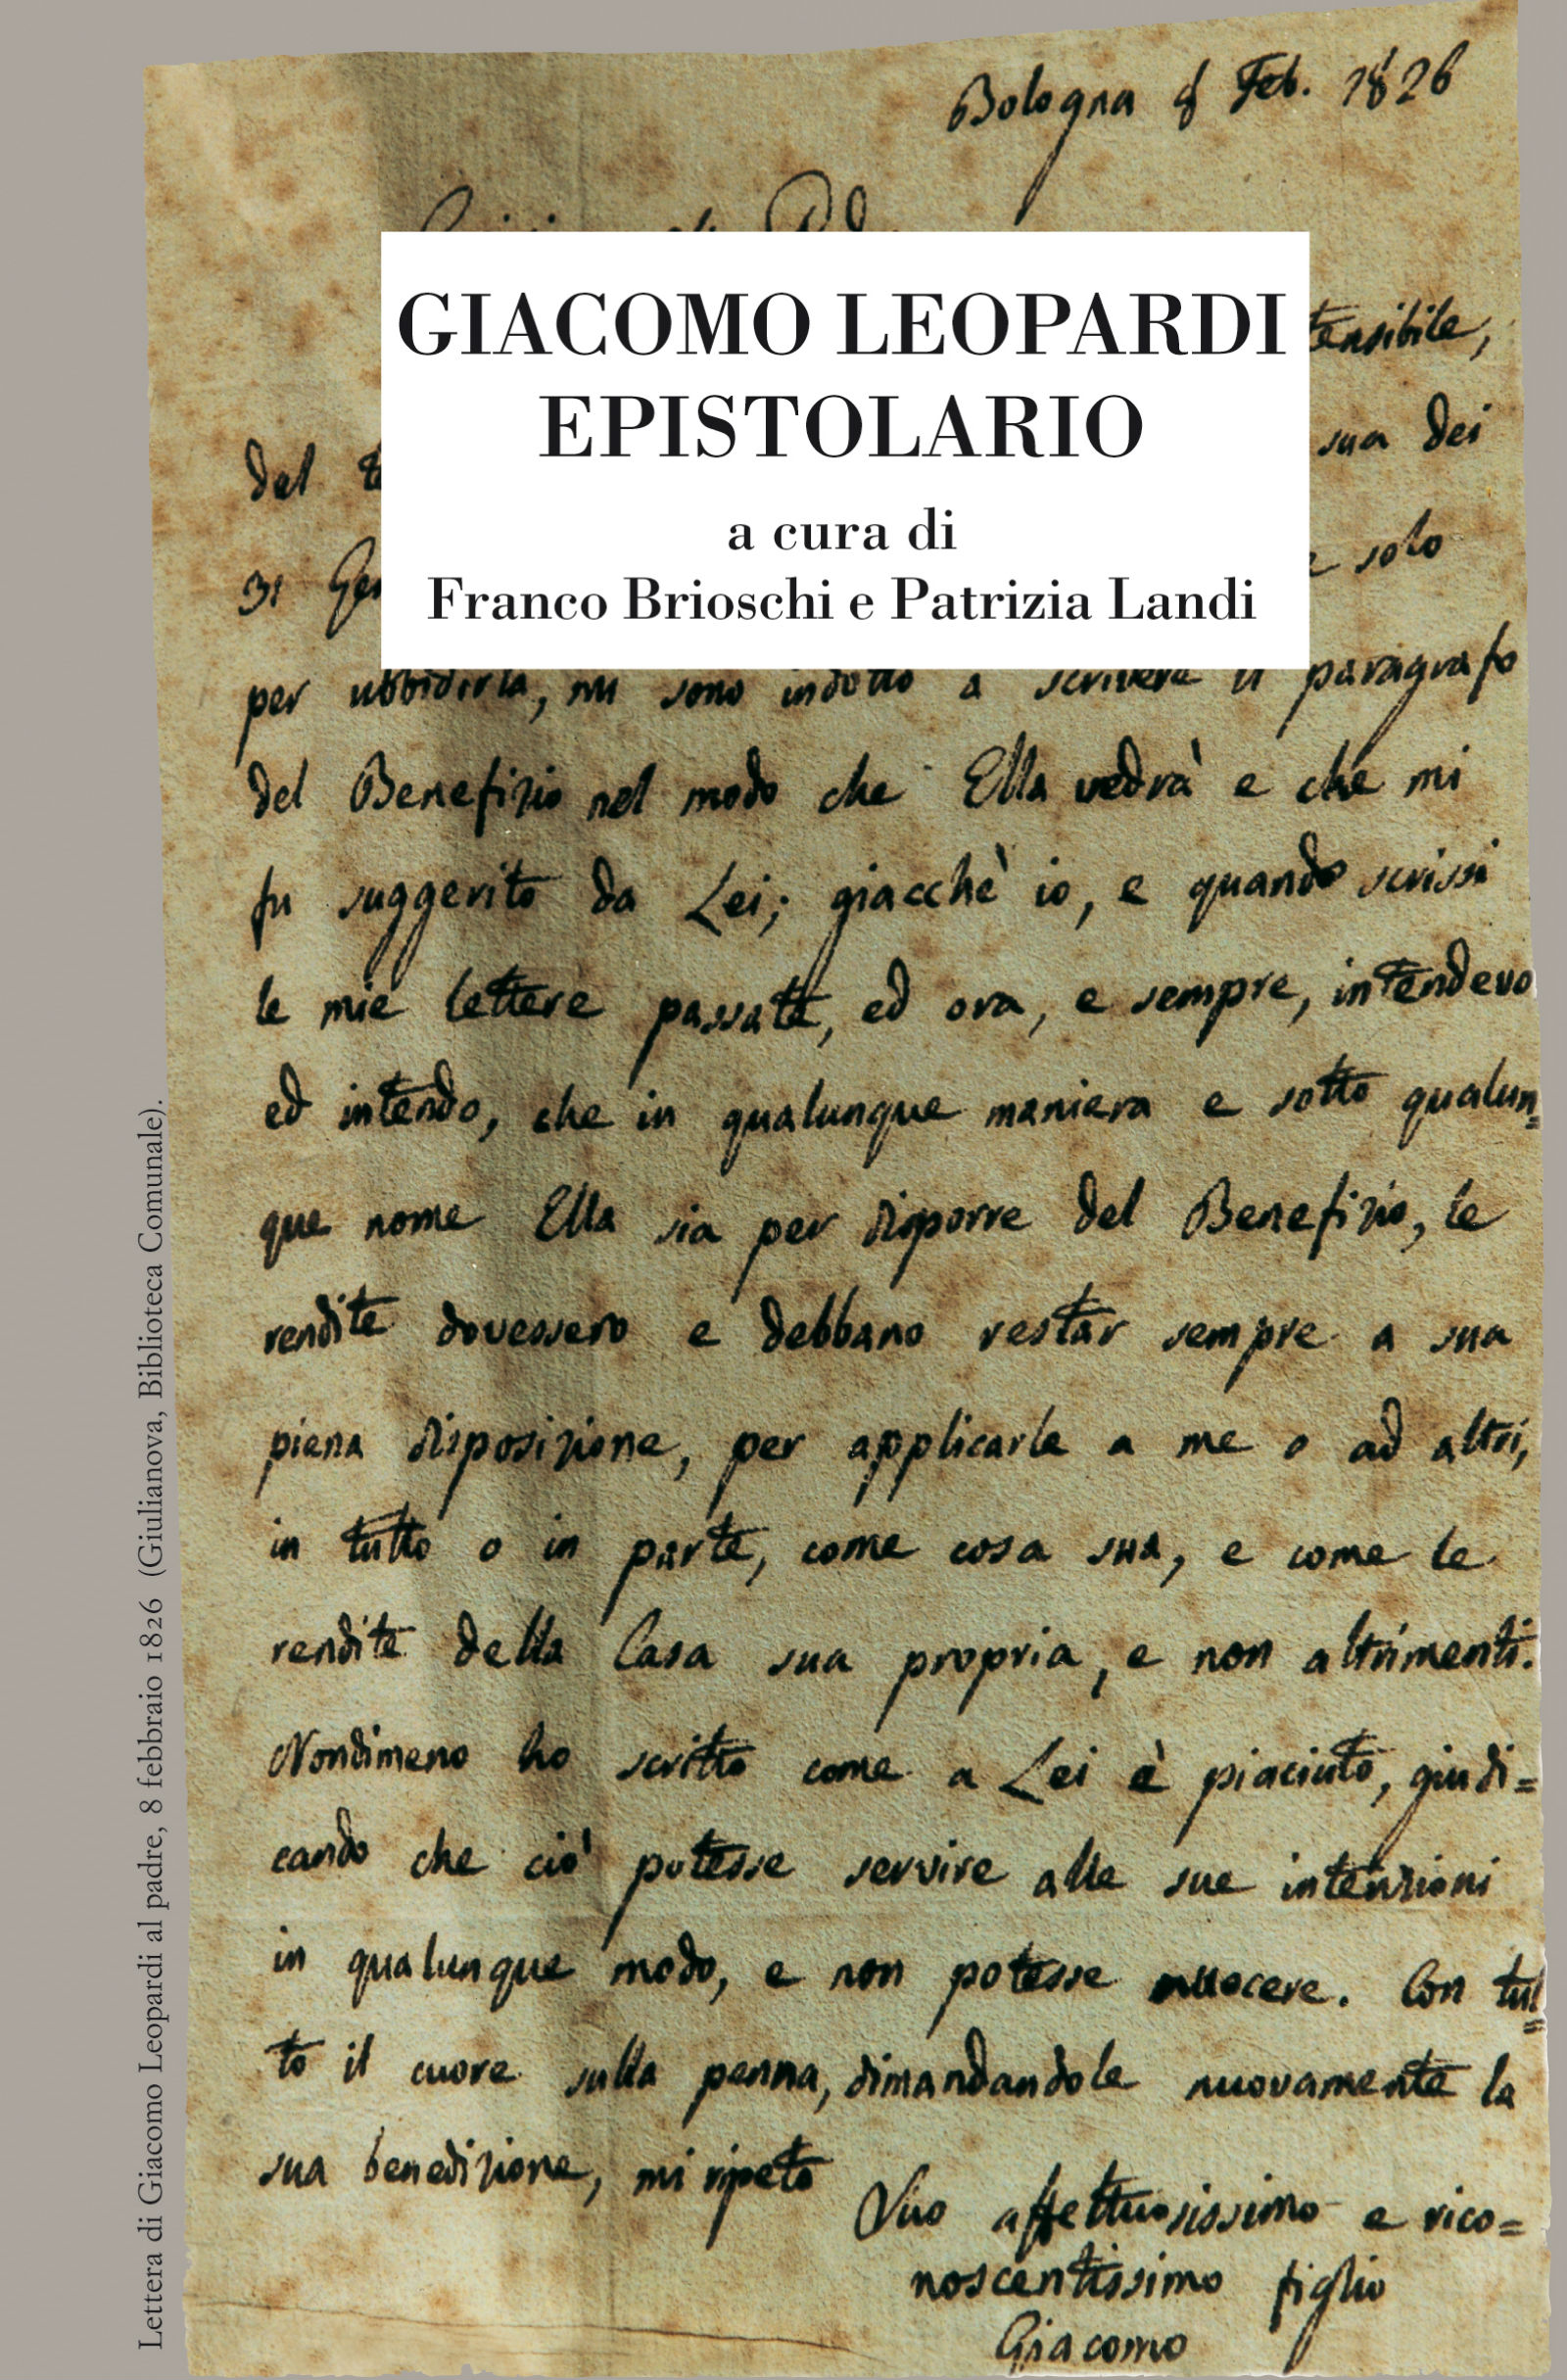 Bologna 8 Feb. 1826
GIACOMO LEOPARDI
EPISTOLARIO
a cura di
Franco Brioschi e Patrizia Landi
tensibile,
del sua dei
31 solo
per ubbidirla, mi sono indotto a scrivere il paragrafo
del Benefizio nel modo che Ella vedrà e che mi
fu suggerito da Lei; giacchè io, e quando scrissi
le mie lettere passate, ed ora, e sempre, intendevo
ed intendo, che in qualunque maniera e sotto qualun=
que nome Ella sia per disporre del Benefizio, le
rendite dovessero e debbano restar sempre a sua
piena disposizione, per applicarle a me o ad altri,
in tutto o in parte, come cosa sua, e come le
rendite della Casa sua propria, e non altrimenti.
Nondimeno ho scritto come a Lei è piaciuto, giudi=
cando che ciò potesse servire alle sue intenzioni
in qualunque modo, e non potesse nuocere. Con tut=
to il cuore sulla penna, dimandandole nuovamente la
sua benedizione, mi ripeto
Suo affettuosissimo e rico=
noscentissimo figlio
Giacomo
Lettera di Giacomo Leopardi al padre, 8 febbraio 1826 (Giulianova, Biblioteca Comunale).